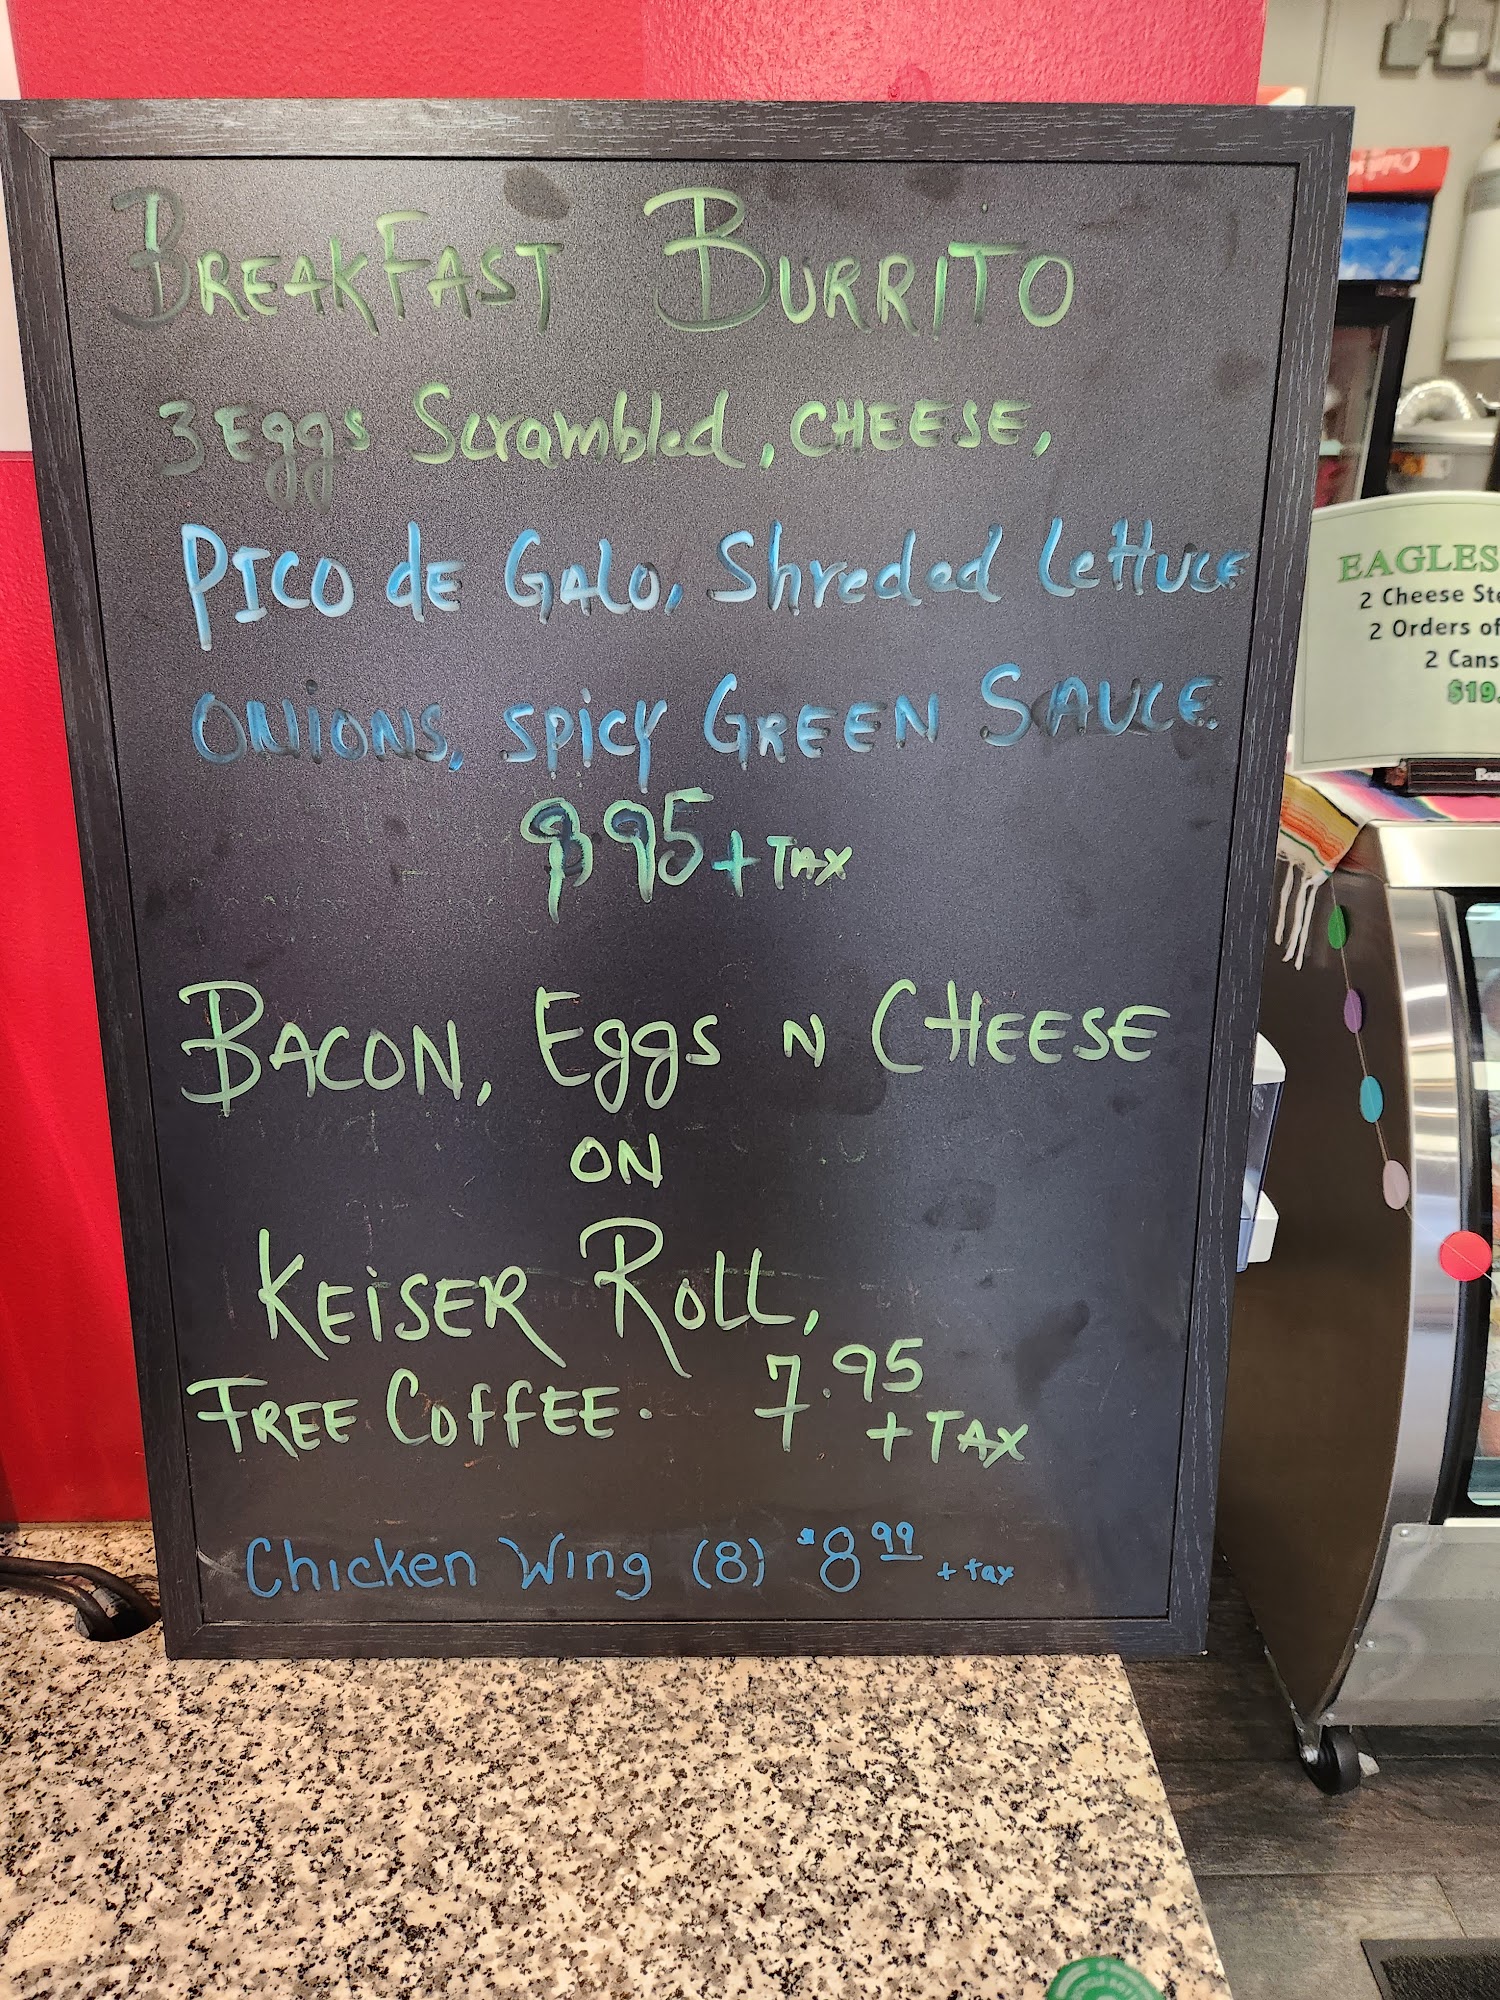 BREAKFAST BURRITO
3 Eggs Scrambled, CHEESE,
PICO dE GALO, Shreded LettucE
ONIONS, SPICY GREEN SAUCE.
9.95 + TAX
BACON, Eggs N CHEESE
ON
KEiSER ROLL,
FREE COFFEE. 7.95
+ TAX
Chicken Wing (8) $8 99 + tax
EAGLES
2 Cheese Ste
2 Orders of
2 Cans
$19.